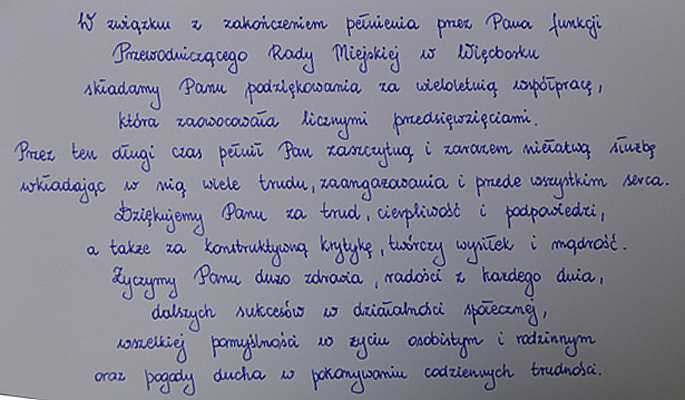 W związku z zakończeniem pełnienia przez Pana funkcji
Przewodniczącego Rady Miejskiej w Więcborku
składamy Panu podziękowania za wieloletnią współpracę,
która zaowocowała licznymi przedsięwzięciami.
Przez ten długi czas pełnił Pan zaszczytną i zarazem niełatwą służbę
wkładając w nią wiele trudu, zaangażowania i przede wszystkim serca.
Dziękujemy Panu za trud, cierpliwość i podpowiedzi,
a także za konstruktywną krytykę, twórczy wysiłek i mądrość.
Życzymy Panu dużo zdrowia, radości z każdego dnia,
dalszych sukcesów w działalności społecznej,
wszelkiej pomyślności w życiu osobistym i rodzinnym
oraz pogody ducha w pokonywaniu codziennych trudności.